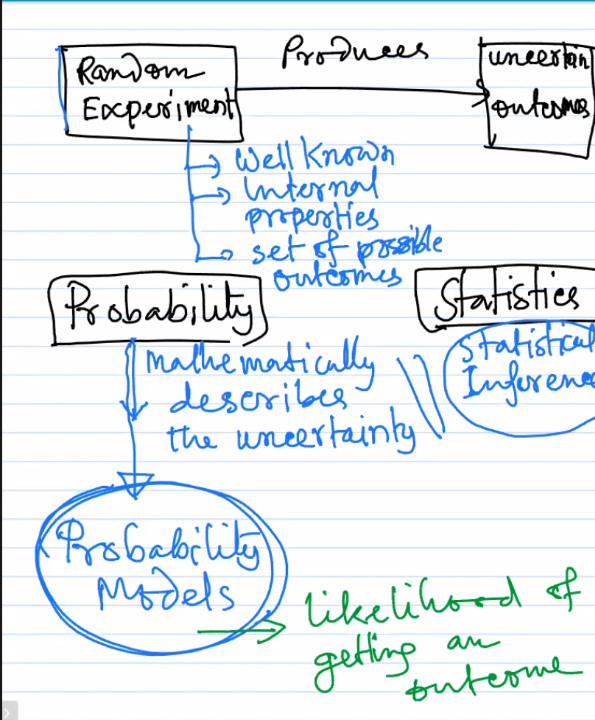 Produces
Random
Experiment
uncertain
outcomes
Well Known
Internal
properties
set of possible
outcomes
Probability
Statistics
mathematically
describes
the uncertainty
Statistical
Inferenc
Probability
Models
likelihood of
getting an
outcome